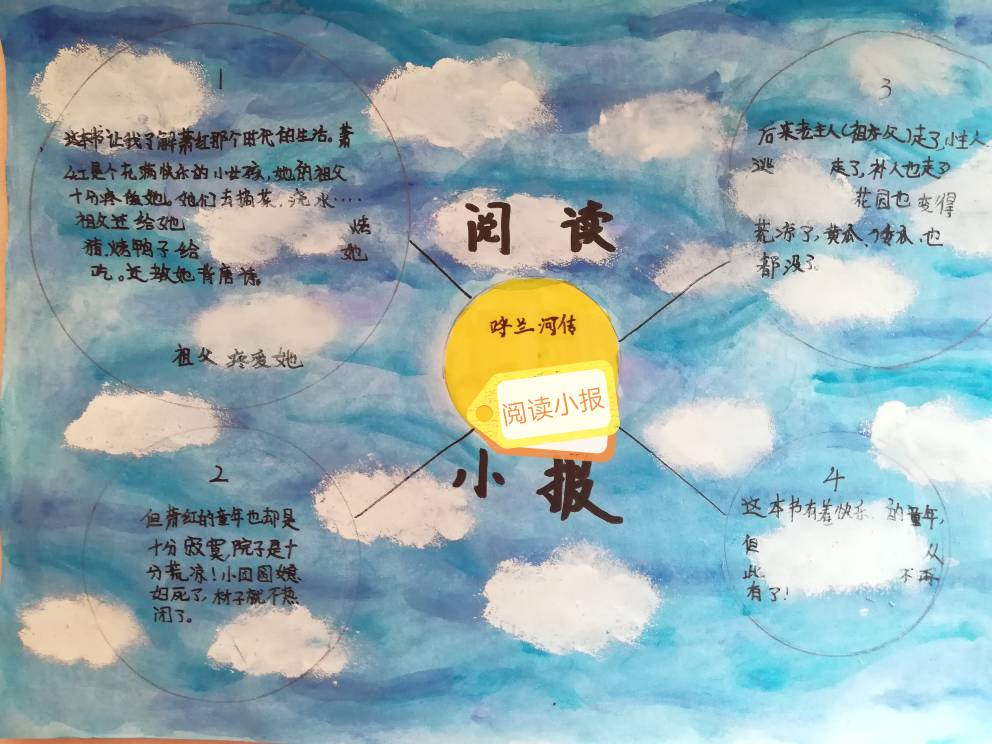 阅读
呼兰河传
阅读小报
小报
1
这本书让我了解萧红那个时代的生活。萧
红是个充满快乐的小女孩,她的祖父
十分疼爱她。她们去摘菜,浇水····
祖父还给她 烤
猪,烤鸭子给 她
吃。还教她背唐诗。
祖父 疼爱她
2
但萧红的童年也却是
十分寂寞,院子是十
分荒凉!小团圆媳
妇死了,村子就不热
闹了。
3
后来老主人(祖父)走了,小主人
逃 走了,仆人也走了
花园也 变得
荒凉了,黄瓜、倭瓜、也
都没了。
4
这本书有着快乐 的童年,
但 从
此 不再
有了!